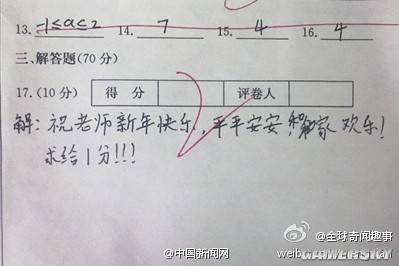 13. -1≤a≤2 14. 7 15. 4 16. 4
三、解答题(70分)
17.(10分) 得 分 评卷人
解:祝老师新年快乐,平平安安,家欢乐!
求给1分!!!
@全球奇闻趣事
@中国新闻网
weib
GAMERSKY